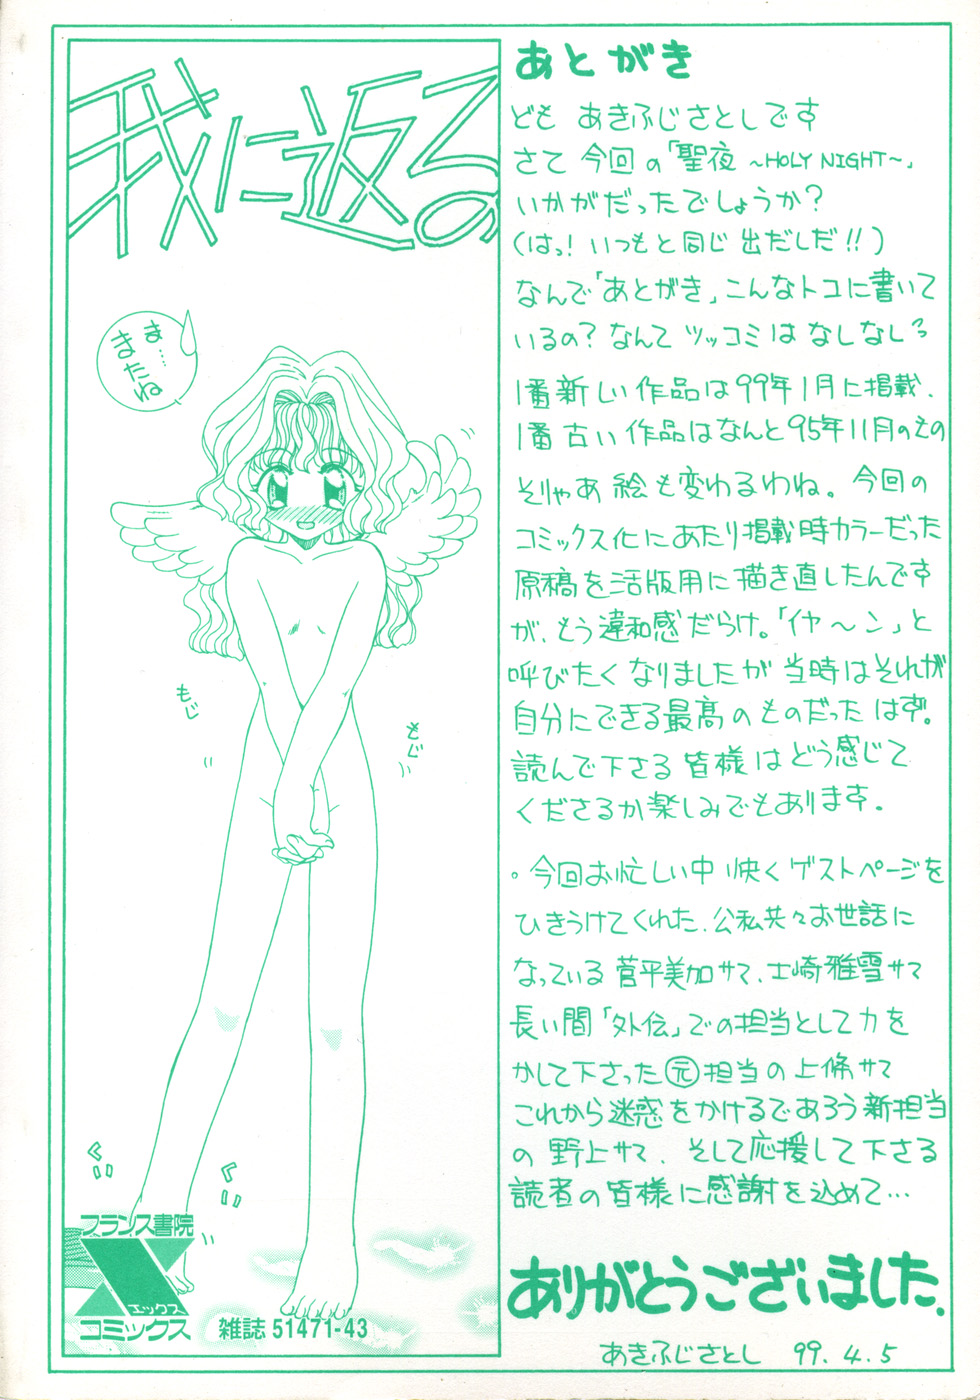 我に返る
ま……
またね
もじ
もじ
あとがき
ども あきふじさとしです
さて 今回の「聖夜 ～HOLY NIGHT～」
いかがだったでしょうか？
(はっ！いつもと同じ出だしだ!!)
なんで「あとがき」こんなトコに書いて
いるの？なんて ツッコミは なしなし
1番新しい作品は99年1月に掲載、
1番古い作品はなんと95年11月のもの
そりゃあ絵も変わるわね。今回の
コミックス化にあたり掲載時カラーだった
原稿を活版用に描き直したんです
が、もう違和感だらけ。「イヤ～ン」と
呼びたくなりましたが当時はそれが
自分にできる最高のものだったはず。
読んで下さる皆様はどう感じて
くださるか楽しみでもあります。
・今回お忙しい中快くゲストページを
ひきうけてくれた、公私共々お世話に
なっている菅平美加サマ、土崎雅雪サマ
長い間「外伝」での担当として力を
かして下さった元担当の上條サマ
これから迷惑をかけるであろう新担当
の野上サマ、そして応援して下さる
読者の皆様に感謝を込めて…
ありがとうございました。
あきふじさとし 99.4.5
フランス書院
X
エックス
コミックス
雑誌 51471-43